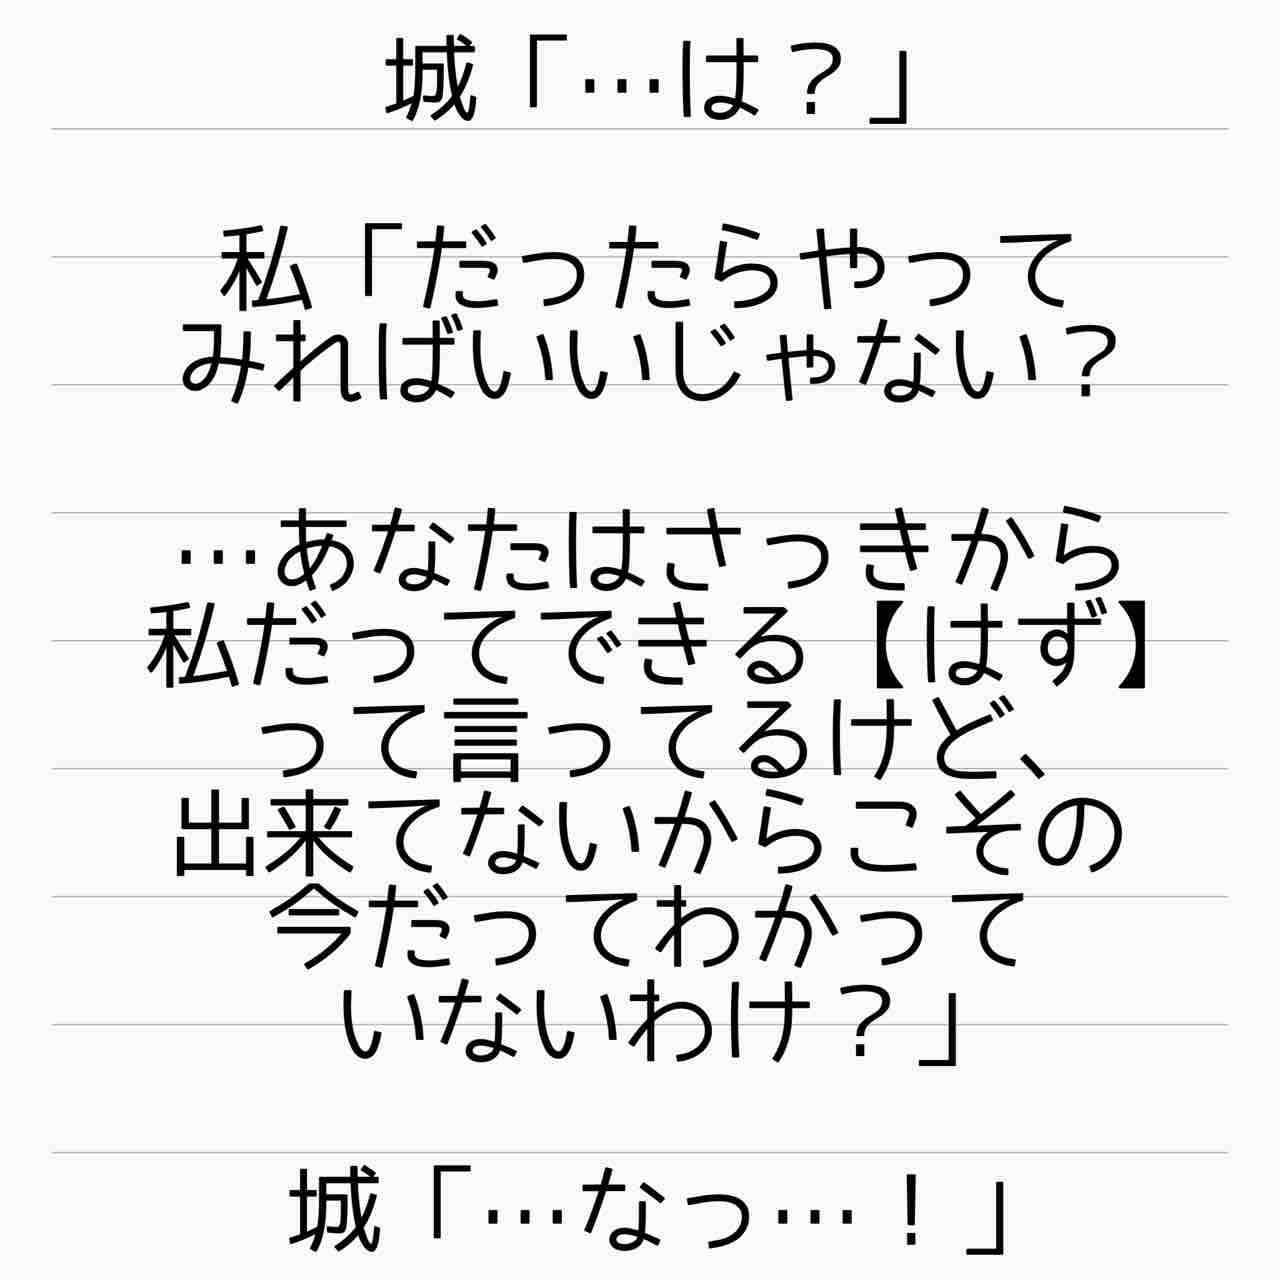 城「…は？」
私「だったらやって
みればいいじゃない？
…あなたはさっきから
私だってできる【はず】
って言ってるけど、
出来てないからこその
今だってわかって
いないわけ？」
城「…なっ…！」